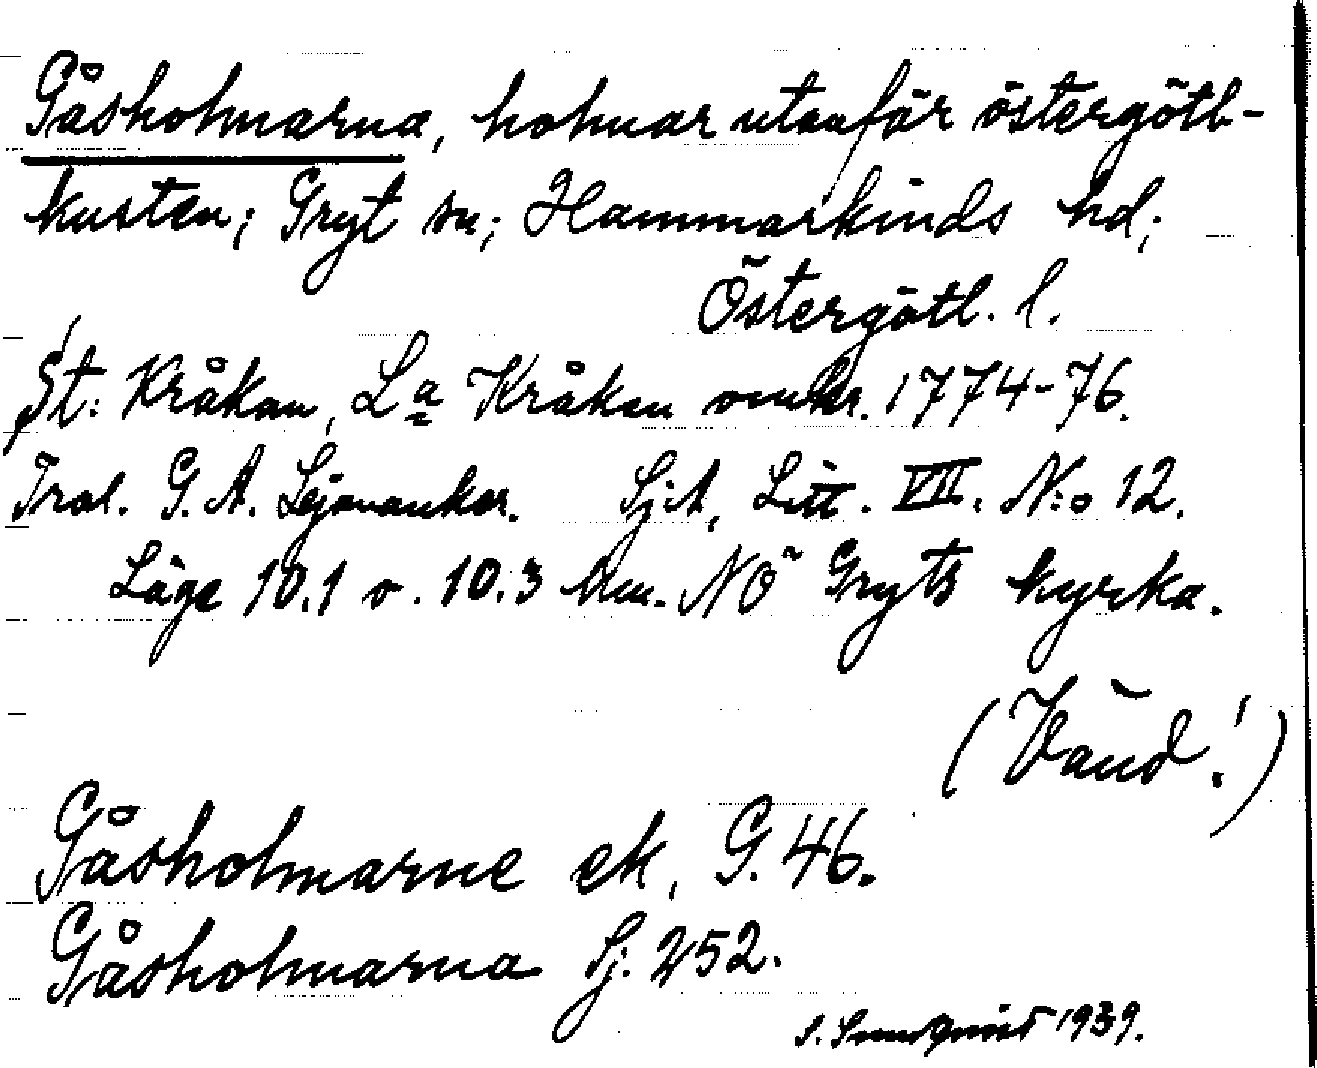 Gåsholmarna, holmar utanför östergötl-
kusten; Gryt sn; Hammarkinds hd;
Östergötl. l.
St: Kråkan, La Kråkan omkr. 1774-76.
Trol. G. A. Lejonanker. SjA, Litt. VII. N:o 12.
Läge 10.1 o. 10.3 km. NÖ Gryts kyrka.
(Vänd!)
Gåsholmarne ek, G. 46.
Gåsholmarna Sj. 252.
S. Sundqvist 1939.